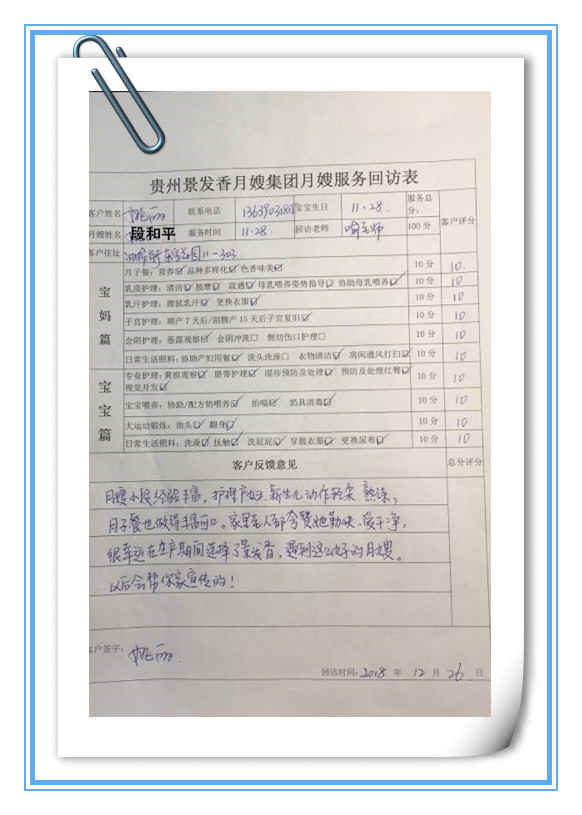 贵州景发香月嫂集团月嫂服务回访表
客户姓名 姚丽 联系电话 宝宝生日 11.28. 服务总分: 客户评分
月嫂姓名 段和平 服务时间 11.28. 回访老师 喻老师 100分
客户住址 11-303
宝妈篇
月子餐:营养☑ 品种多样化☑ 色香味美☑ 10分 10.
乳房护理:清洁☑ 按摩☑ 疏通☑ 母乳喂养姿势指导☑ 协助母乳喂养☑ 10分 10
乳汗护理:擦拭乳汗☑ 更换衣服☑ 10分 10
子宫护理:顺产7天后/剖腹产15天后子宫复旧☑ 10分 10
会阴护理:恶露观察☑ 会阴冲洗□ 侧切伤口护理□ 10分 10
日常生活照料:协助产妇用餐☑ 洗头洗澡□ 衣物清洁☑ 房间通风打扫☑ 10分 10
宝宝篇
专业护理:黄疸观察☑ 脐带护理☑ 湿疹预防及处理☑ 预防及处理红臀☑ 10分 10
视觉开发☑
宝宝喂养:协助/配方奶喂养☑ 拍嗝☑ 奶具消毒☑ 10分 10
大运动锻炼:抬头☑ 翻身☑ 10分 10
日常生活照料:洗澡☑ 抚触☑ 洗屁屁☑ 穿脱衣服☑ 更换尿布☑ 10分 10
客户反馈意见 总分评分
月嫂小段经验丰富,护理产妇、新生儿动作轻柔 熟练,
月子餐也做得丰富可口。家里老人都夸赞她勤快、爱干净,
很幸运在生产期间选择了景发香,遇到这么好的月嫂。
以后会帮你家宣传的!
客户签字: 姚丽.
回访时间:2018 年 12 月 26 日